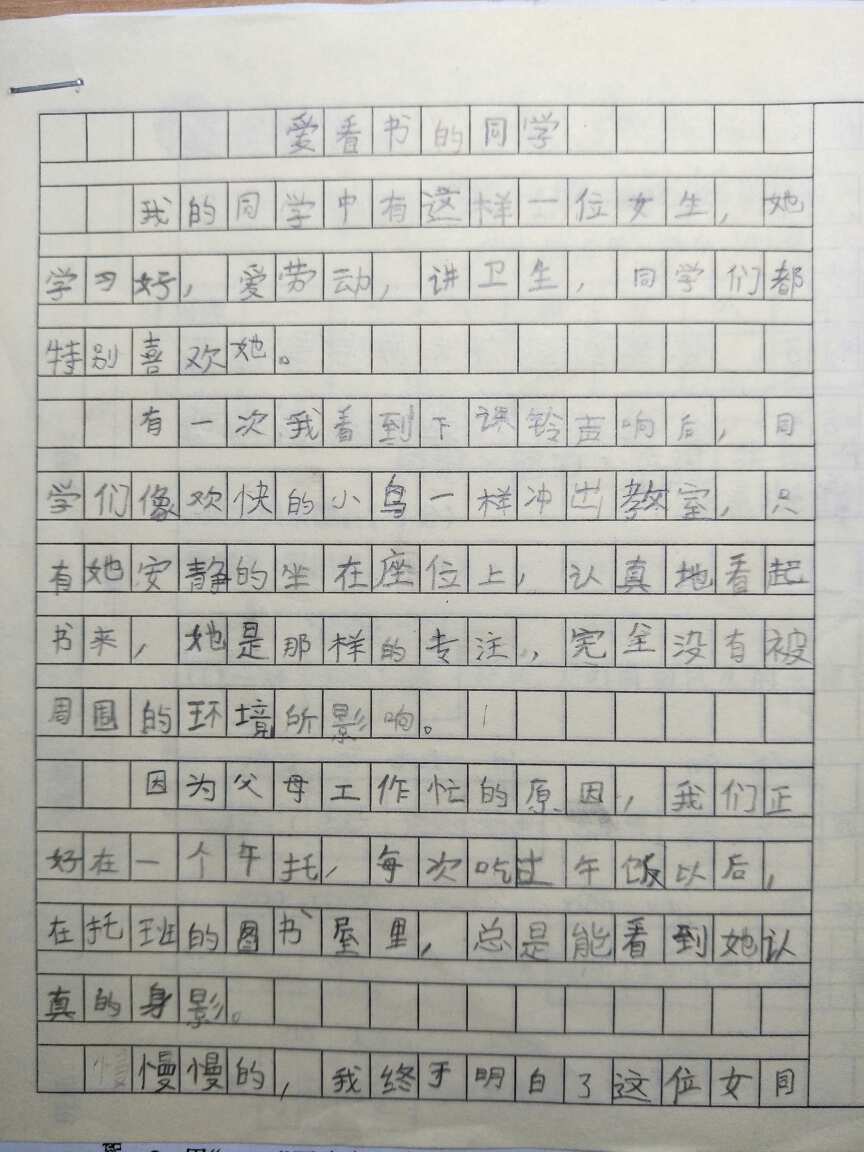 爱看书的同学
我的同学中有这样一位女生，她
学习好，爱劳动，讲卫生，同学们都
特别喜欢她。
有一次我看到下课铃声响后，同
学们像欢快的小鸟一样冲出教室，只
有她安静的坐在座位上，认真地看起
书来，她是那样的专注，完全没有被
周围的环境所影响。
因为父母工作忙的原因，我们正
好在一个午托，每次吃过午饭以后，
在托班的图书屋里，总是能看到她认
真的身影。
慢慢的，我终于明白了这位女同